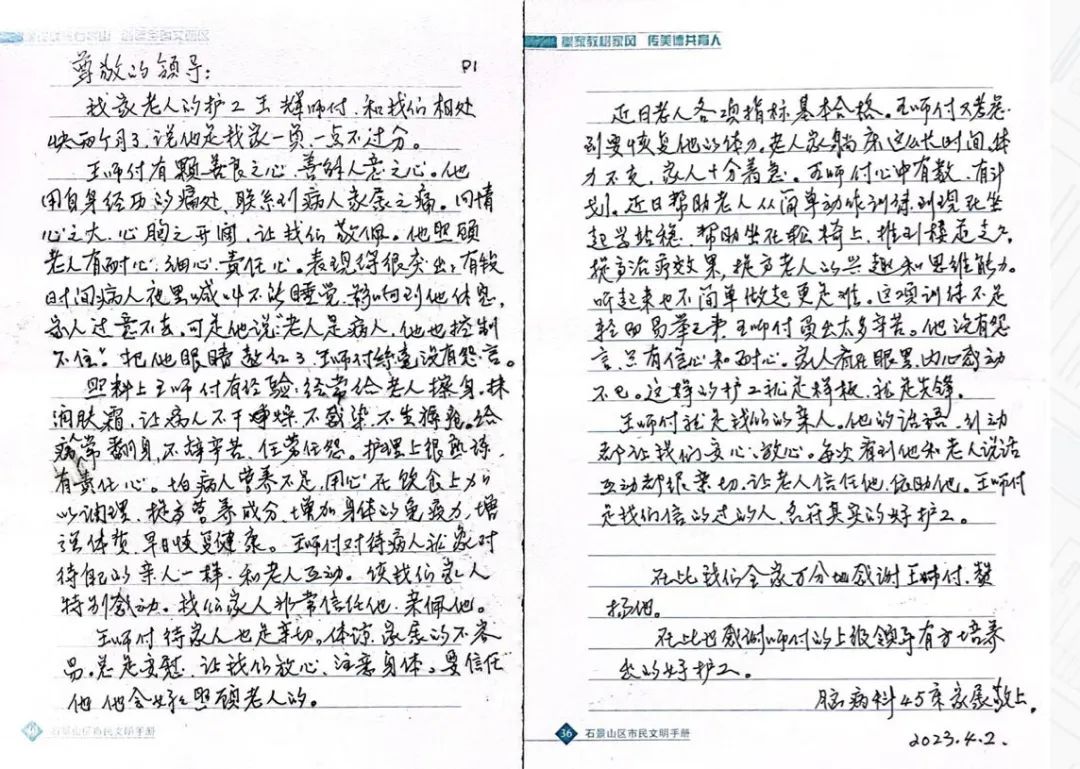 尊敬的领导:
P1
我家老人的护工王辉师付,和我们相处
快两个月了,说他是我家一员,一点不过分。
王师付有颗善良之心,善解人意之心。他
用自身经历的痛处,联系到病人家属之痛。同情
心之大,心胸之开阔,让我们敬佩。他照顾
老人有耐心、细心、责任心。表现得很突出,有段
时间病人夜里喊叫不能睡觉,影响到他休息,
家人过意不去,可是他说“老人是病人,他也控制
不住”。把他眼睛熬红了,王师付丝毫没有怨言。
照料上王师付有经验,经常给老人擦身,抹
润肤霜,让病人不干燥,不感染,不生褥疮。给
病常翻身,不辞辛苦,任劳任怨。护理上很熟练,
有责任心。怕病人营养不足,用心在饮食上加
以调理,提高营养成分,增加身体的免疫力,增
强体质,早日恢复健康。王师付对待病人就象对
待自己的亲人一样,和老人互动。使我们家人
特别感动。我们家人非常信任他,亲佩他。
王师付待家人也是亲切。体谅家属的不容
易。总是安慰,让我们放心,注意身体。要信任
他他会好好照顾老人的。
石景山区市民文明手册
重家教树家风 传美德共育人
近日老人各项指标基本合格。王师付又考虑
到要恢复他的体力。老人家躺床这么长时间,体
力不支,家人十分着急。王师付心中有数,有计
划。近日帮助老人从简单动作训练到现在坐
起学站稳,帮助坐在轮椅上,推到楼道走走。
提高治疗效果,提高老人的兴趣和思维能力。
听起来也不简单做起更是难。这项训练不是
轻而易举之事,王师付负出太多辛苦。他没有怨
言,只有信心和耐心。家人看在眼里,内心感动
不已。这样的护工就是样板,就是先锋。
王师付就是我们的亲人。他的话语、行动
都让我们安心、放心。每次看到他和老人说话
互动都很亲切,让老人信任他,依助他。王师付
是我们信的过的人,名符其实的好护工。
在此我们全家万分地感谢王师付,赞
扬他。
在此也感谢师付的上级领导有方培养
出的好护工。
脑病科45床家属敬上。
2023.4.2.
36 石景山区市民文明手册